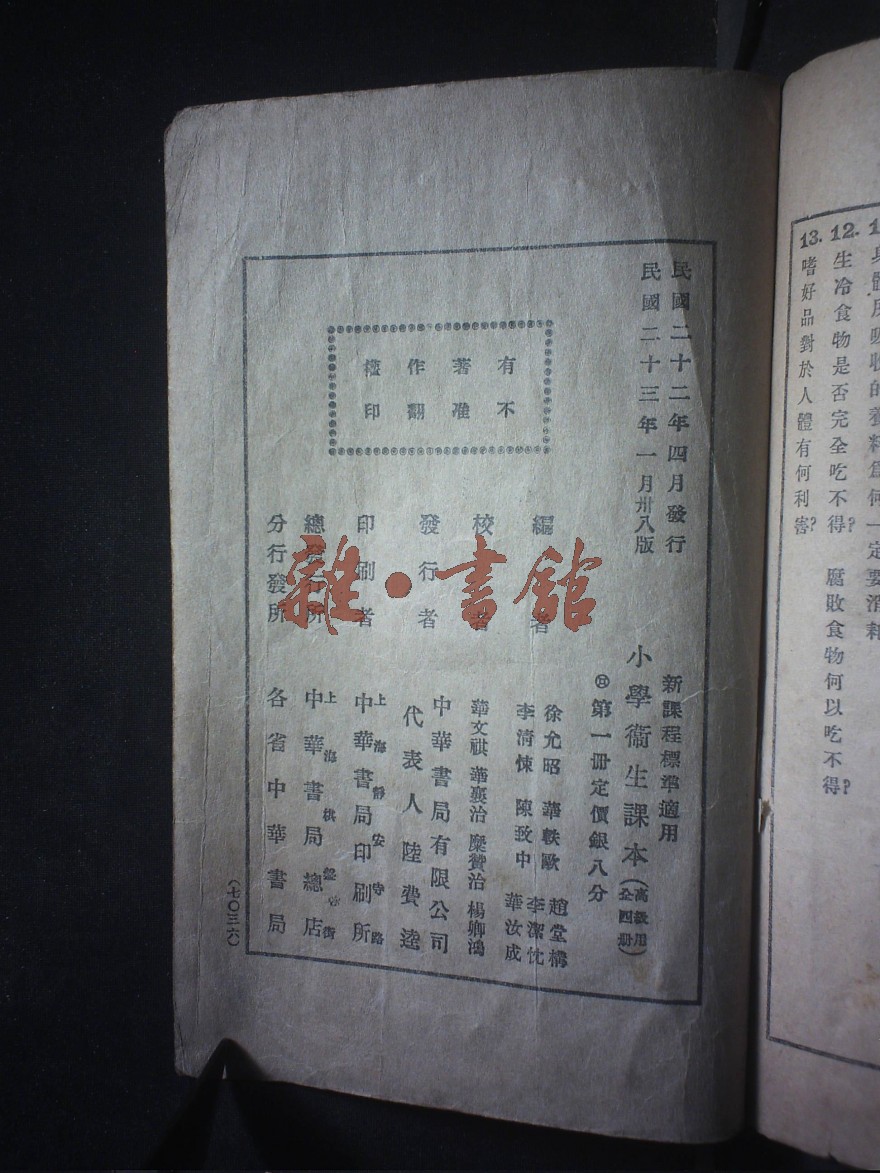 身體所吸收的養料爲何一定要消耗
12. 生冷食物是否完全吃不得？ 腐敗食物何以吃不得？
13. 嗜好品對於人體有何利害？
民國二十二年四月發行
民國二十三年一月卅八版
有著作權
不准翻印
新課程標準適用
小學衞生課本（高級用全四册）
第一册定價銀八分
編者
徐允昭 華軼歐 趙堂構
李清悚 陳致中 李潔忱
華汝成
校者
華文祺 華襄治 糜贊治 楊卿鴻
發行者
中華書局有限公司
代表人 陸費逵
印刷者
上海靜安寺路
中華書局印刷所
總發行所
上海棋盤街
中華書局總店
分行發所
各省中華書局
（七〇三六）
雜·書館